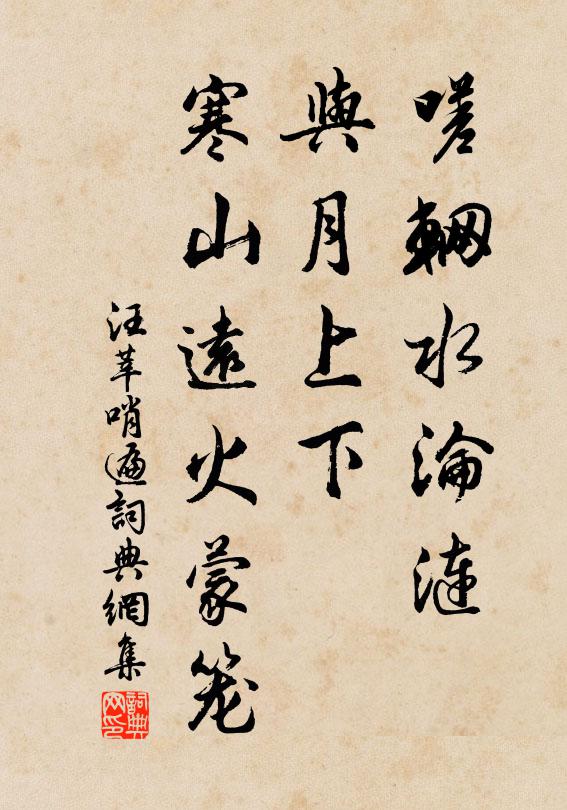 嗟輞水淪漣
與月上下
寒山遠火蒙笼
汪莘哨遍詞典網集
詞典
网印